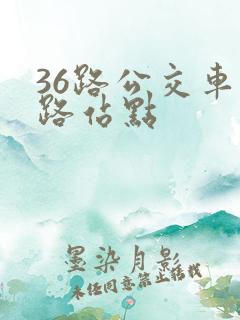 36路公交車
路佔點
墨染月影
未经同意禁止转载